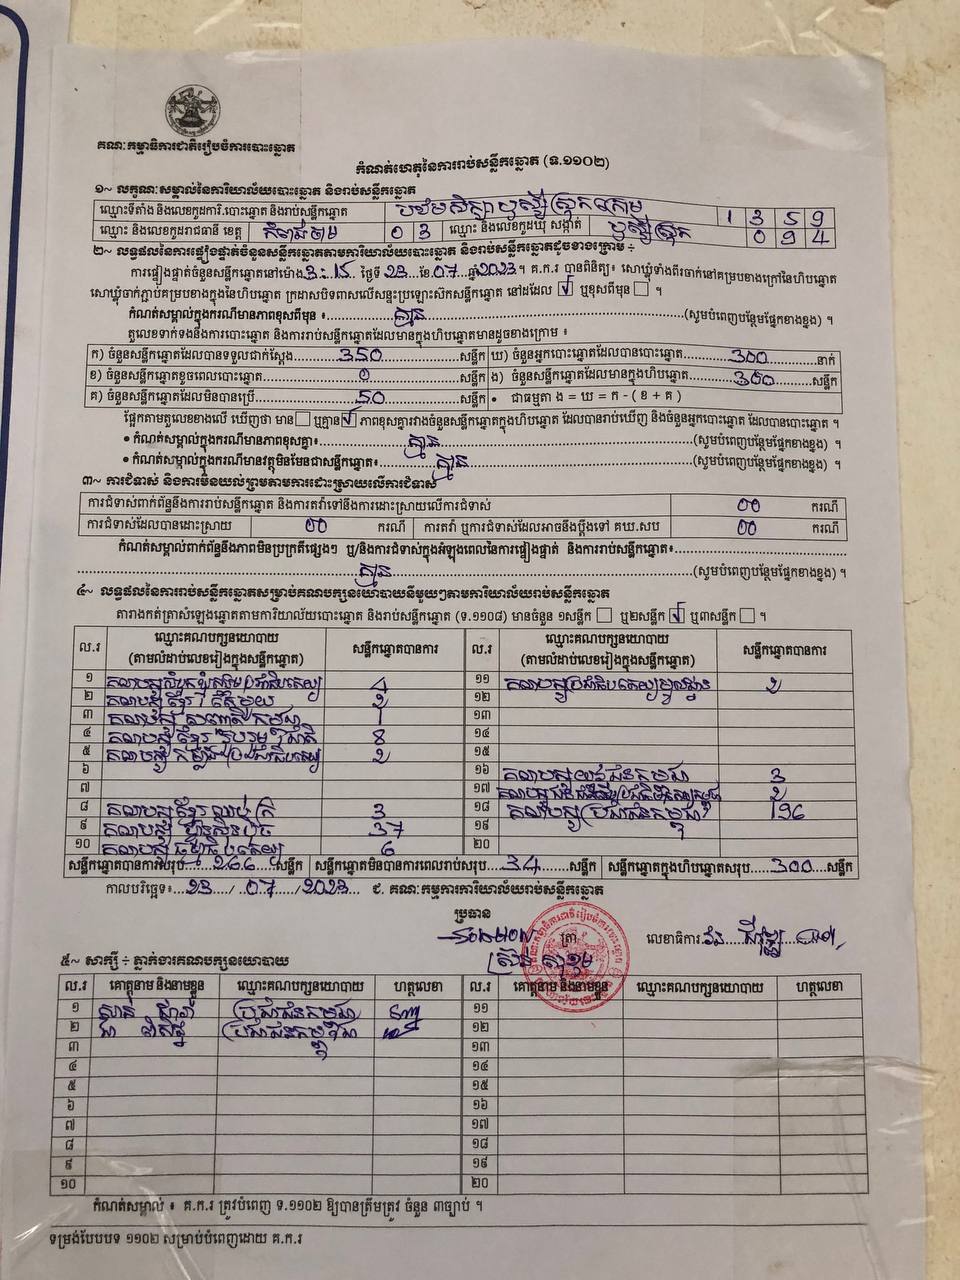 គណៈកម្មាធិការជាតិរៀបចំការបោះឆ្នោត
កំណត់ហេតុនៃការរាប់សន្លឹកឆ្នោត (ទ.១១០២)
១~ លក្ខណៈសម្គាល់នៃការិយាល័យបោះឆ្នោត និងរាប់សន្លឹកឆ្នោត
ឈ្មោះទីតាំង និងលេខកូដការិ.បោះឆ្នោត និងរាប់សន្លឹកឆ្នោត 1 3 5 9
ឈ្មោះ និងលេខកូដរាជធានី ខេត្ត កំពង់ចាម 0 3 ឈ្មោះ និងលេខកូដឃុំ សង្កាត់ ឫស្សីស្រុក 0 9 4
២~ លទ្ធផលនៃការផ្ទៀងផ្ទាត់ចំនួនសន្លឹកឆ្នោតតាមការិយាល័យបោះឆ្នោត និងរាប់សន្លឹកឆ្នោតដូចខាងក្រោម ÷
ការផ្ទៀងផ្ទាត់ចំនួនសន្លឹកឆ្នោតនៅម៉ោង 3:15 ថ្ងៃទី 23 ខែ 07 ឆ្នាំ 2023 ។ គ.ក.រ បានពិនិត្យ៖ សោឃ្លុំទាំងពីរចាក់នៅគម្របខាងក្រៅនៃហិបឆ្នោត
សោឃ្លុំចាក់ភ្ជាប់គម្របខាងក្នុងនៃហិបឆ្នោត ក្រដាសបិទពាសលើសន្ទះប្រឡោះស៊កសន្លឹកឆ្នោត នៅដដែល ☑ ឬខុសពីមុន ☐ ។
កំណត់សម្គាល់ក្នុងករណីមានភាពខុសពីមុន ៖ គ្មាន (សូមបំពេញបន្ថែមផ្នែកខាងខ្នង) ។
តួលេខទាក់ទងនឹងការបោះឆ្នោត និងការរាប់សន្លឹកឆ្នោតដែលមានក្នុងហិបឆ្នោតមានដូចខាងក្រោម ៖
ក) ចំនួនសន្លឹកឆ្នោតដែលបានទទួលជាក់ស្តែង 350 សន្លឹក ឃ) ចំនួនអ្នកបោះឆ្នោតដែលបានបោះឆ្នោត 300 នាក់
ខ) ចំនួនសន្លឹកឆ្នោតខូចពេលបោះឆ្នោត 0 សន្លឹក ង) ចំនួនសន្លឹកឆ្នោតដែលមានក្នុងហិបឆ្នោត 300 សន្លឹក
គ) ចំនួនសន្លឹកឆ្នោតដែលមិនបានប្រើ 50 សន្លឹក • ជាធម្មតា ង = ឃ = ក - ( ខ + គ )
ផ្អែកតាមតួលេខខាងលើ ឃើញថា មាន ☐ ឬគ្មាន ☑ ភាពខុសគ្នារវាងចំនួនសន្លឹកឆ្នោតក្នុងហិបឆ្នោត ដែលបានរាប់ឃើញ និងចំនួនអ្នកបោះឆ្នោត ដែលបានបោះឆ្នោត ។
• កំណត់សម្គាល់ក្នុងករណីមានភាពខុសគ្នា៖ គ្មាន (សូមបំពេញបន្ថែមផ្នែកខាងខ្នង) ។
• កំណត់សម្គាល់ក្នុងករណីមានវត្ថុមិនមែនជាសន្លឹកឆ្នោត៖ គ្មាន (សូមបំពេញបន្ថែមផ្នែកខាងខ្នង) ។
៣~ ការជំទាស់ និងការមិនយល់ព្រមតាមការដោះស្រាយលើការជំទាស់
ការជំទាស់ពាក់ព័ន្ធនឹងការរាប់សន្លឹកឆ្នោត និងការតវ៉ាទៅនឹងការដោះស្រាយលើការជំទាស់ 00 ករណី
ការជំទាស់ដែលបានដោះស្រាយ 00 ករណី ការតវ៉ា ឬការជំទាស់ដែលអាចនឹងប្តឹងទៅ គឃ.សប 00 ករណី
កំណត់សម្គាល់ពាក់ព័ន្ធនឹងភាពមិនប្រក្រតីផ្សេងៗ ឬ/និងការជំទាស់ក្នុងអំឡុងពេលនៃការផ្ទៀងផ្ទាត់ និងការរាប់សន្លឹកឆ្នោត៖
គ្មាន (សូមបំពេញបន្ថែមផ្នែកខាងខ្នង) ។
៤~ លទ្ធផលនៃការរាប់សន្លឹកឆ្នោតសម្រាប់គណបក្សនយោបាយនីមួយៗតាមការិយាល័យរាប់សន្លឹកឆ្នោត
តារាងកត់ត្រាសំឡេងឆ្នោតតាមការិយាល័យបោះឆ្នោត និងរាប់សន្លឹកឆ្នោត (ទ.១១០៨) មានចំនួន ១សន្លឹក ☐ ឬ២សន្លឹក ☑ ឬ៣សន្លឹក ☐ ។
ល.រ ឈ្មោះគណបក្សនយោបាយ (តាមលំដាប់លេខរៀងក្នុងសន្លឹកឆ្នោត) សន្លឹកឆ្នោតបានការ ល.រ ឈ្មោះគណបក្សនយោបាយ (តាមលំដាប់លេខរៀងក្នុងសន្លឹកឆ្នោត) សន្លឹកឆ្នោតបានការ
១ គណបក្សសំបុកឃ្មុំសង្គមប្រជាធិបតេយ្យ 4 ១១ គណបក្សប្រជាធិបតេយ្យមូលដ្ឋាន 2
២ គណបក្សខ្មែររួបរួម 2 ១២
៣ គណបក្សសញ្ជាតិកម្ពុជា 1 ១៣
៤ គណបក្សខ្មែររួបរួមជាតិ 8 ១៤
៥ គណបក្សកម្លាំងប្រជាធិបតេយ្យ 2 ១៥
៦ ១៦ គណបក្សយុវជនកម្ពុជា 3
៧ ១៧ 2
៨ គណបក្សខ្មែរ 3 ១៨ គណបក្សប្រជាជនកម្ពុជា 196
៩ គណបក្សហ៊្វុនស៊ិនប៉ិច 37 ១៩
១០ គណបក្សធម្មាធិបតេយ្យ 6 ២០
សន្លឹកឆ្នោតបានការសរុប 266 សន្លឹក សន្លឹកឆ្នោតមិនបានការពេលរាប់សរុប 34 សន្លឹក សន្លឹកឆ្នោតក្នុងហិបឆ្នោតសរុប 300 សន្លឹក
កាលបរិច្ឆេទ៖ 23 / 07 / 2023 ជ. គណៈកម្មការការិយាល័យរាប់សន្លឹកឆ្នោត
ប្រធាន
ត្រា លេខាធិការ
៥~ សាក្សី ÷ ភ្នាក់ងារគណបក្សនយោបាយ
ល.រ គោត្តនាម និងនាមខ្លួន ឈ្មោះគណបក្សនយោបាយ ហត្ថលេខា ល.រ គោត្តនាម និងនាមខ្លួន ឈ្មោះគណបក្សនយោបាយ ហត្ថលេខា
១ ប្រជាជនកម្ពុជា ១១
២ ប្រជាជនកម្ពុជា ១២
៣ ១៣
៤ ១៤
៥ ១៥
៦ ១៦
៧ ១៧
៨ ១៨
៩ ១៩
១០ ២០
កំណត់សម្គាល់ ៖ គ.ក.រ ត្រូវបំពេញ ទ.១១០២ ឱ្យបានត្រឹមត្រូវ ចំនួន ៣ច្បាប់ ។
ទម្រង់បែបបទ ១១០២ សម្រាប់បំពេញដោយ គ.ក.រ